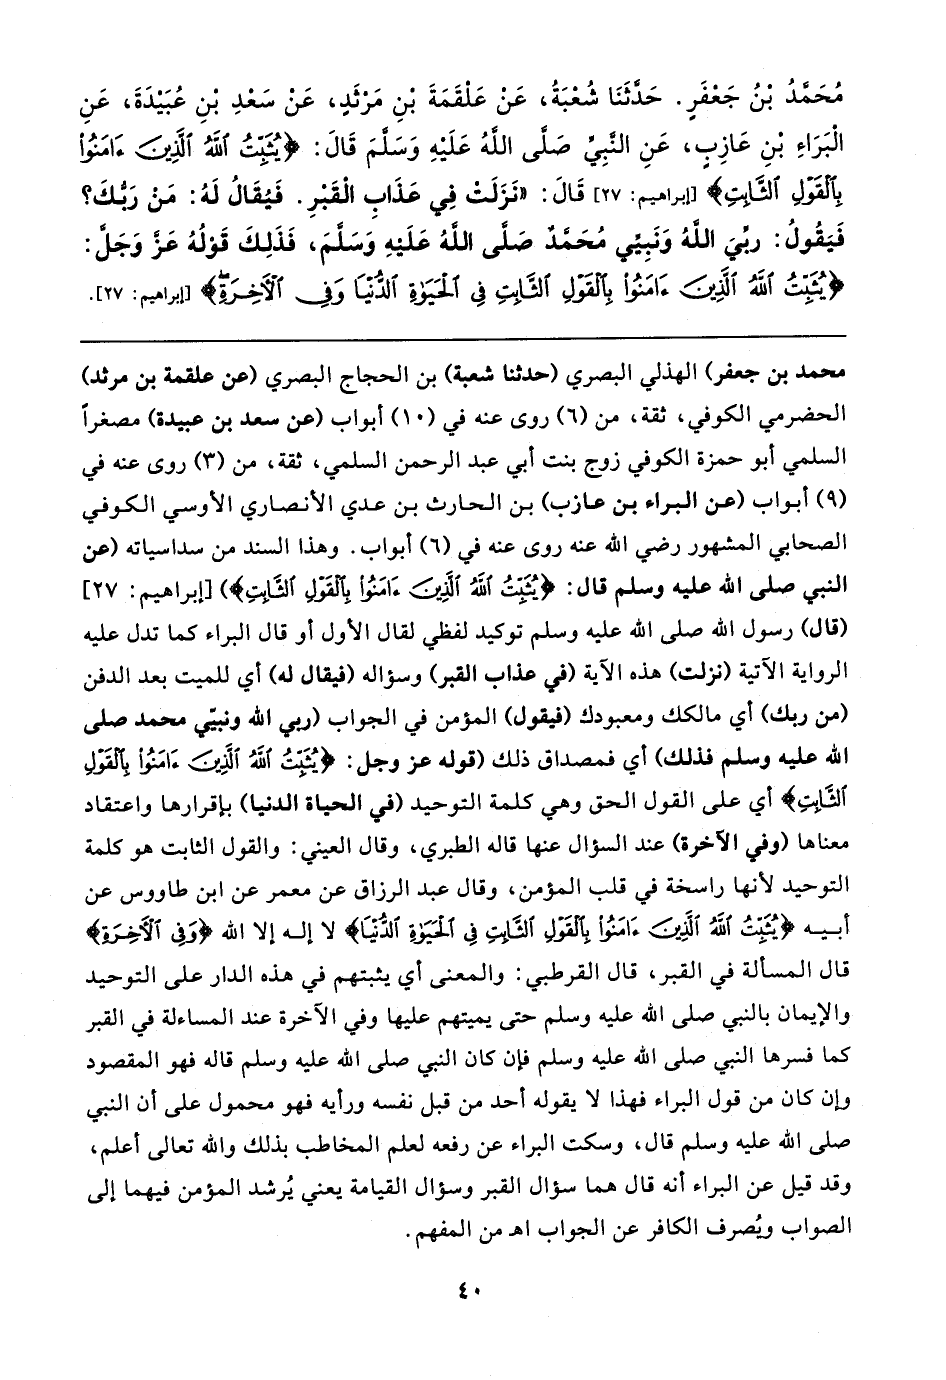 مُحَمَّدُ بْنُ جَعْفَرٍ. حَدَّثَنَا شُعْبَةُ، عَنْ عَلْقَمَةَ بْنِ مَرْثَدٍ، عَنْ سَعْدِ بْنِ عُبَيْدَةَ، عَنِ
الْبَرَاءِ بْنِ عَازِبٍ، عَنِ النَّبِيِّ صَلَّى اللَّهُ عَلَيْهِ وَسَلَّمَ قَالَ: ﴿يُثَبِّتُ ٱللَّهُ ٱلَّذِينَ ءَامَنُوا۟
بِٱلْقَوْلِ ٱلثَّابِتِ﴾ [إبراهيم: ٢٧] قَالَ: «نَزَلَتْ فِي عَذَابِ الْقَبْرِ. فَيُقَالُ لَهُ: مَنْ رَبُّكَ؟
فَيَقُولُ: رَبِّيَ اللَّهُ وَنَبِيِّي مُحَمَّدٌ صَلَّى اللَّهُ عَلَيْهِ وَسَلَّمَ، فَذَلِكَ قَوْلُهُ عَزَّ وَجَلَّ:
﴿يُثَبِّتُ ٱللَّهُ ٱلَّذِينَ ءَامَنُوا۟ بِٱلْقَوْلِ ٱلثَّابِتِ فِي ٱلْحَيَوٰةِ ٱلدُّنْيَا وَفِي ٱلْآخِرَةِۖ﴾ [إبراهيم: ٢٧].
محمد بن جعفر) الهذلي البصري (حدثنا شعبة) بن الحجاج البصري (عن علقمة بن مرثد)
الحضرمي الكوفي، ثقة، من (٦) روى عنه في (١٠) أبواب (عن سعد بن عبيدة) مصغراً
السلمي أبو حمزة الكوفي زوج بنت أبي عبد الرحمن السلمي، ثقة، من (٣) روى عنه في
(٩) أبواب (عن البراء بن عازب) بن الحارث بن عدي الأنصاري الأوسي الكوفي
الصحابي المشهور رضي الله عنه روى عنه في (٦) أبواب. وهذا السند من سداسياته (عن
النبي صلى الله عليه وسلم قال: ﴿يُثَبِّتُ ٱللَّهُ ٱلَّذِينَ ءَامَنُوا۟ بِٱلْقَوْلِ ٱلثَّابِتِ﴾) [إبراهيم: ٢٧]
(قال) رسول الله صلى الله عليه وسلم توكيد لفظي لقال الأول أو قال البراء كما تدل عليه
الرواية الآتية (نزلت) هذه الآية (في عذاب القبر) وسؤاله (فيقال له) أي للميت بعد الدفن
(من ربك) أي مالكك ومعبودك (فيقول) المؤمن في الجواب (ربي الله ونبيّي محمد صلى
الله عليه وسلم فذلك) أي فمصداق ذلك (قوله عز وجل: ﴿يُثَبِّتُ ٱللَّهُ ٱلَّذِينَ ءَامَنُوا۟ بِٱلْقَوْلِ
ٱلثَّابِتِ﴾ أي على القول الحق وهي كلمة التوحيد (في الحياة الدنيا) بإقرارها واعتقاد
معناها (وفي الآخرة) عند السؤال عنها قاله الطبري، وقال العيني: والقول الثابت هو كلمة
التوحيد لأنها راسخة في قلب المؤمن، وقال عبد الرزاق عن معمر عن ابن طاووس عن
أبيه ﴿يُثَبِّتُ ٱللَّهُ ٱلَّذِينَ ءَامَنُوا۟ بِٱلْقَوْلِ ٱلثَّابِتِ فِي ٱلْحَيَوٰةِ ٱلدُّنْيَا﴾ لا إله إلا الله ﴿وَفِي ٱلْآخِرَةِ﴾
قال المسألة في القبر، قال القرطبي: والمعنى أي يثبتهم في هذه الدار على التوحيد
والإيمان بالنبي صلى الله عليه وسلم حتى يميتهم عليها وفي الآخرة عند المساءلة في القبر
كما فسرها النبي صلى الله عليه وسلم فإن كان النبي صلى الله عليه وسلم قاله فهو المقصود
وإن كان من قول البراء فهذا لا يقوله أحد من قبل نفسه ورأيه فهو محمول على أن النبي
صلى الله عليه وسلم قال، وسكت البراء عن رفعه لعلم المخاطب بذلك والله تعالى أعلم،
وقد قيل عن البراء أنه قال هما سؤال القبر وسؤال القيامة يعني يُرشد المؤمن فيهما إلى
الصواب ويُصرف الكافر عن الجواب اهـ من المفهم.
٤٠